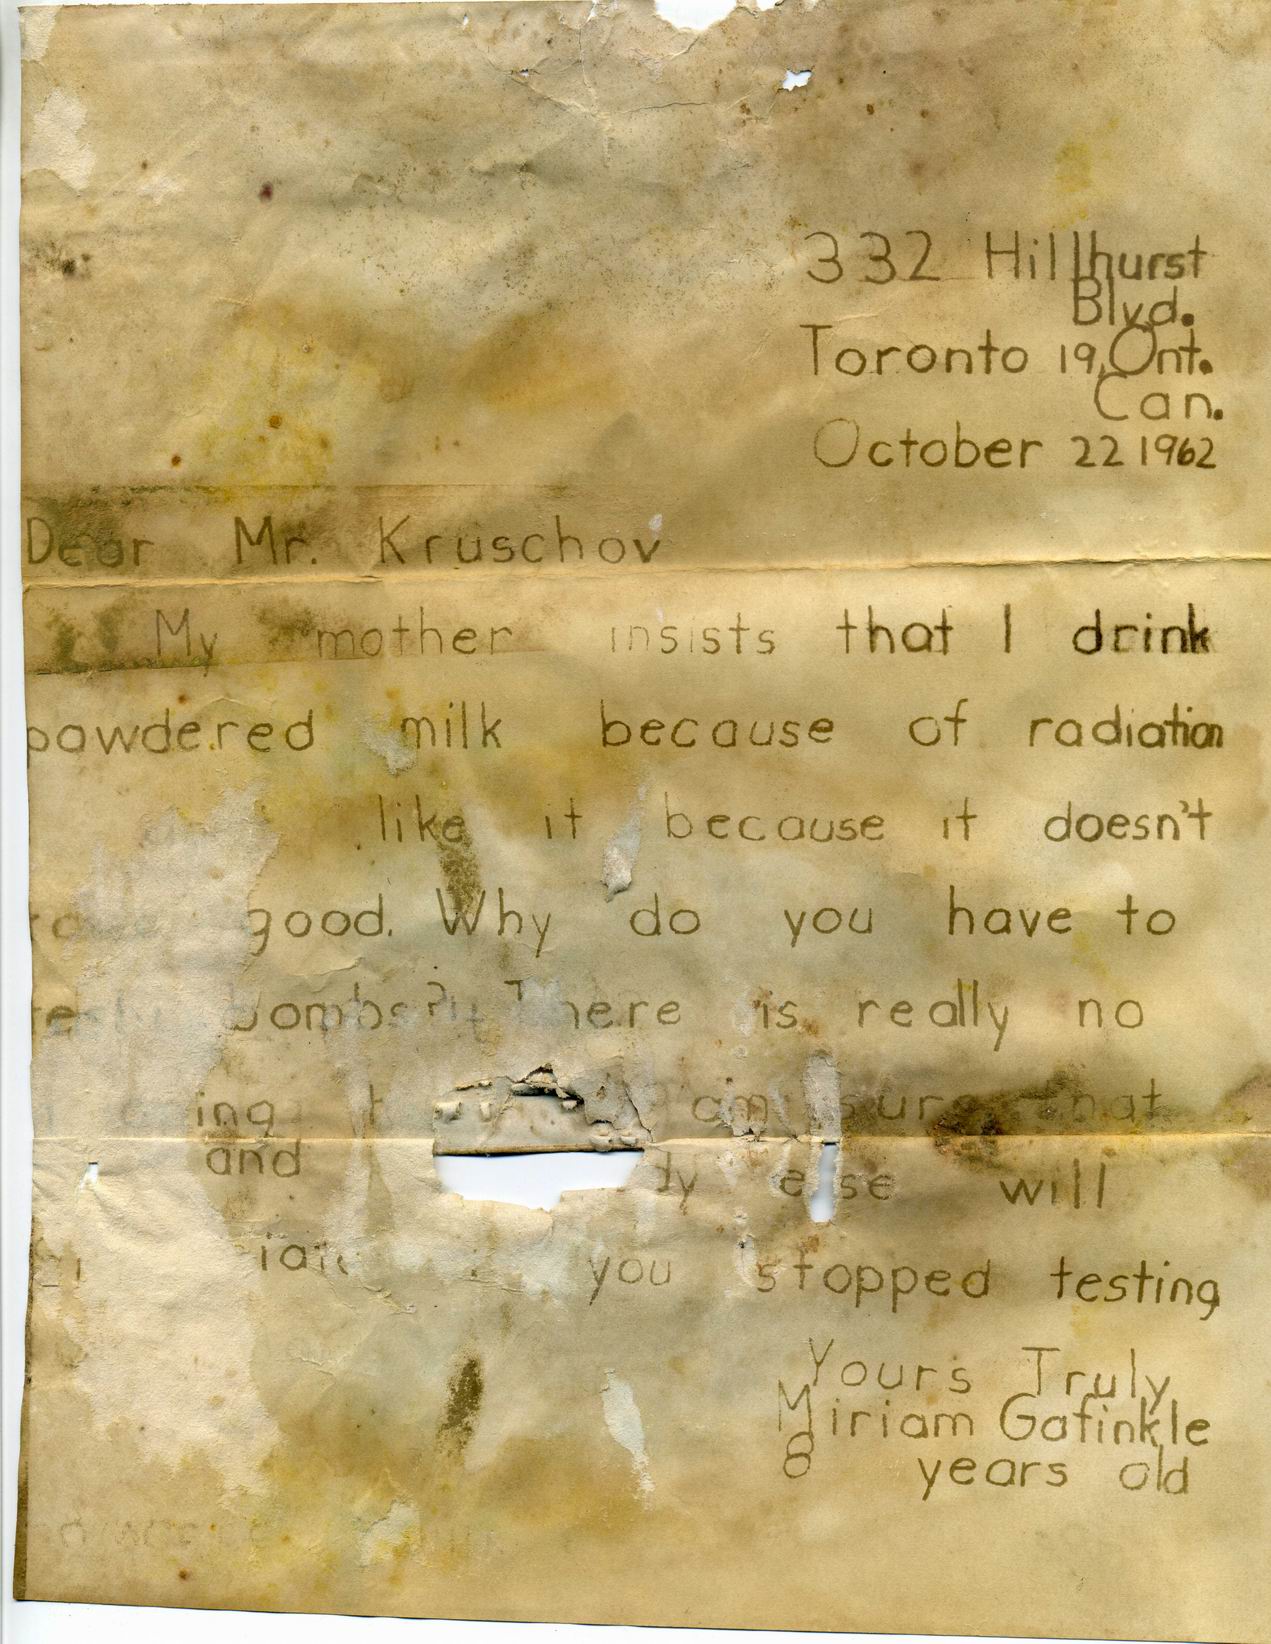 332 Hillhurst
Blvd.
Toronto 19, Ont.
Can.
October 22 1962
Dear Mr. Kruschov
My mother insists that I drink
powdered milk because of radiation
like it because it doesn't
good. Why do you have to
bombs? There is really no
am sure that
and else will
you stopped testing
Yours Truly
Miriam Gafinkle
8 years old